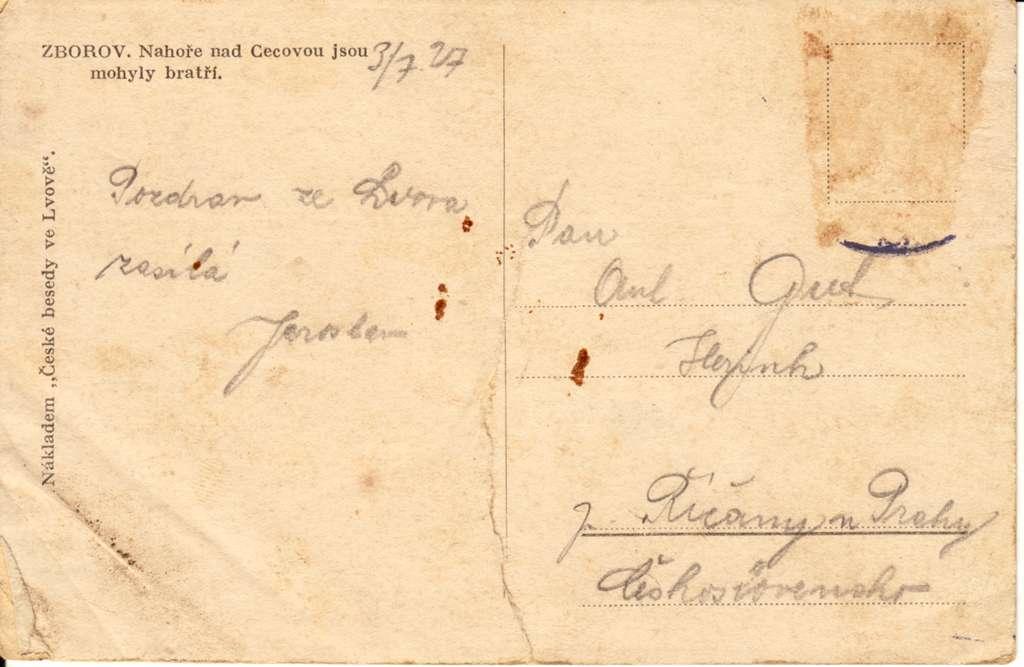 ZBOROV. Nahoře nad Cecovou jsou
mohyly bratří.
3/7 27
Nákladem „České besedy ve Lvově“.
Pozdrav ze Lvova
zasílá
Jaroslav
Pan
Ant
Říčany u Prahy
Československo